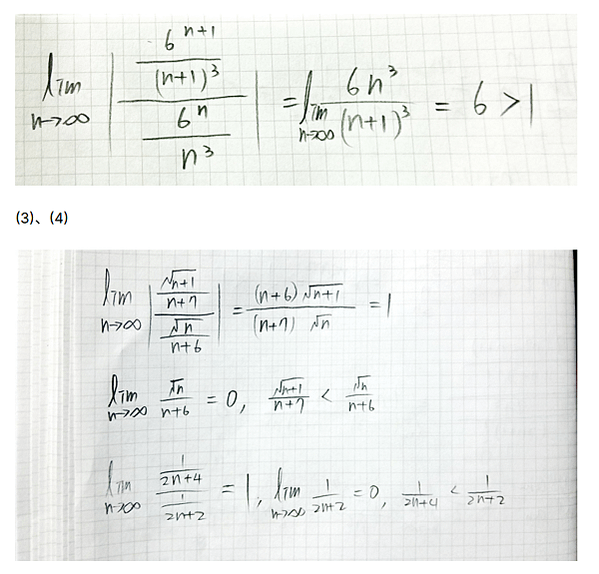 lim_{n→∞} | (6^{n+1}/(n+1)^3) / (6^n/n^3) | = lim_{n→∞} 6n^3/(n+1)^3 = 6 > 1
(3)、(4)
lim_{n→∞} | (√(n+1)/(n+7)) / (√n/(n+6)) | = (n+6)√(n+1) / (n+7)√n = 1
lim_{n→∞} √n/(n+6) = 0, √(n+1)/(n+7) < √n/(n+6)
lim_{n→∞} (1/(2n+4)) / (1/(2n+2)) = 1, lim_{n→∞} 1/(2n+2) = 0, 1/(2n+4) < 1/(2n+2)